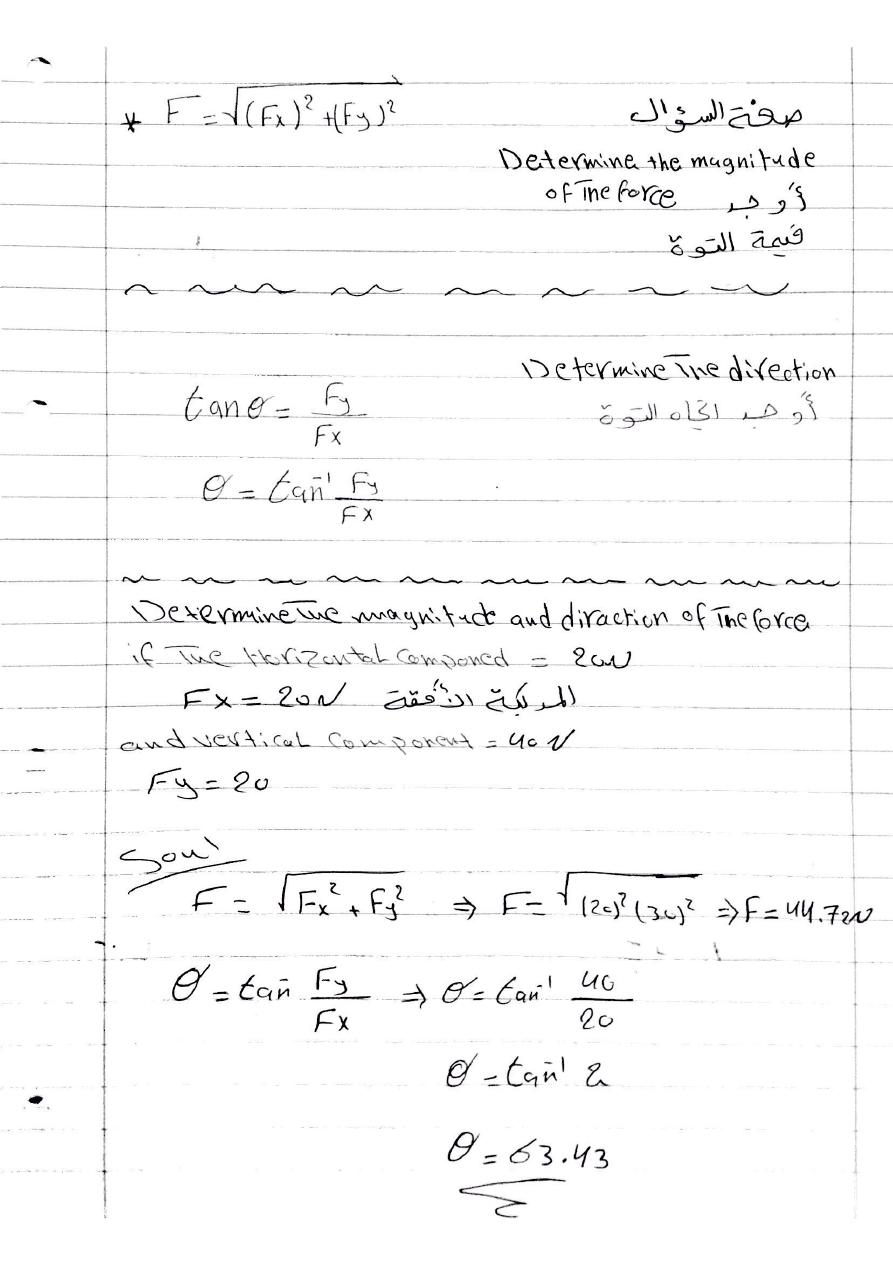 * F = √(Fx)² + (Fy)²
صيغة السؤال
Determine the magnitude
of The force أوجد
قيمة القوة
Determine The direction
tanθ = Fy/Fx
أوجد اتجاه القوة
θ = tan⁻¹ Fy/Fx
Determine The magnitude and diraction of The force
if The Horizontal Componed = 20N
Fx = 20N المركبة الأفقية
and vertical Component = 40N
Fy = 20
F = √Fx² + Fy² ⇒ F = √(20)² (30)² ⇒ F = 44.72N
θ = tan⁻ Fy/Fx ⇒ θ = tan⁻¹ 40/20
θ = tan⁻¹ 2
θ = 63.43